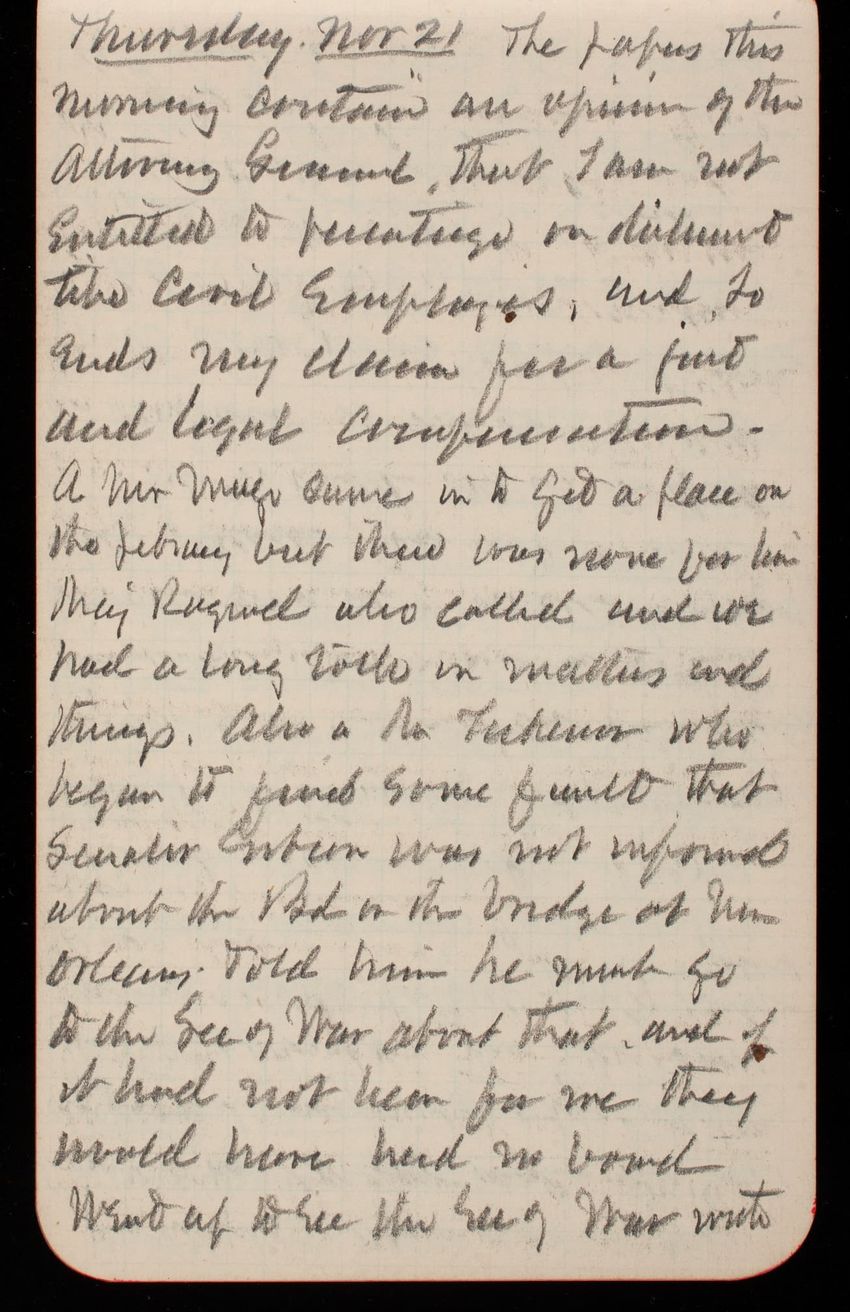 Thursday. Nov 21 The papers this
morning contain an opinion of the
Attorney General, that I am not
Entitled to percentage on disbursmt
like Civil Employes, and so
Ends my claim for a just
and legal compensation.
A Mr came in to get a place on
the febrary but there was none for him
Maj also called and we
had a long talk on matters and
things. Also a Mr who
began to find some fault that
Senator was not informed
about the Bd on the bridge at New
Orleans. Told him he must go
to the Sec of War about that. and if
it had not been for me they
would have had no board
Went up to see the Sec of War with